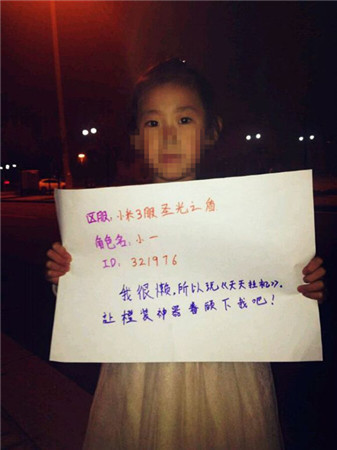 区服：小米3服圣光之盾
角色名：小一
ID：321976
我很懒，所以玩《天天挂机》。
让橙装神器眷顾下我吧！